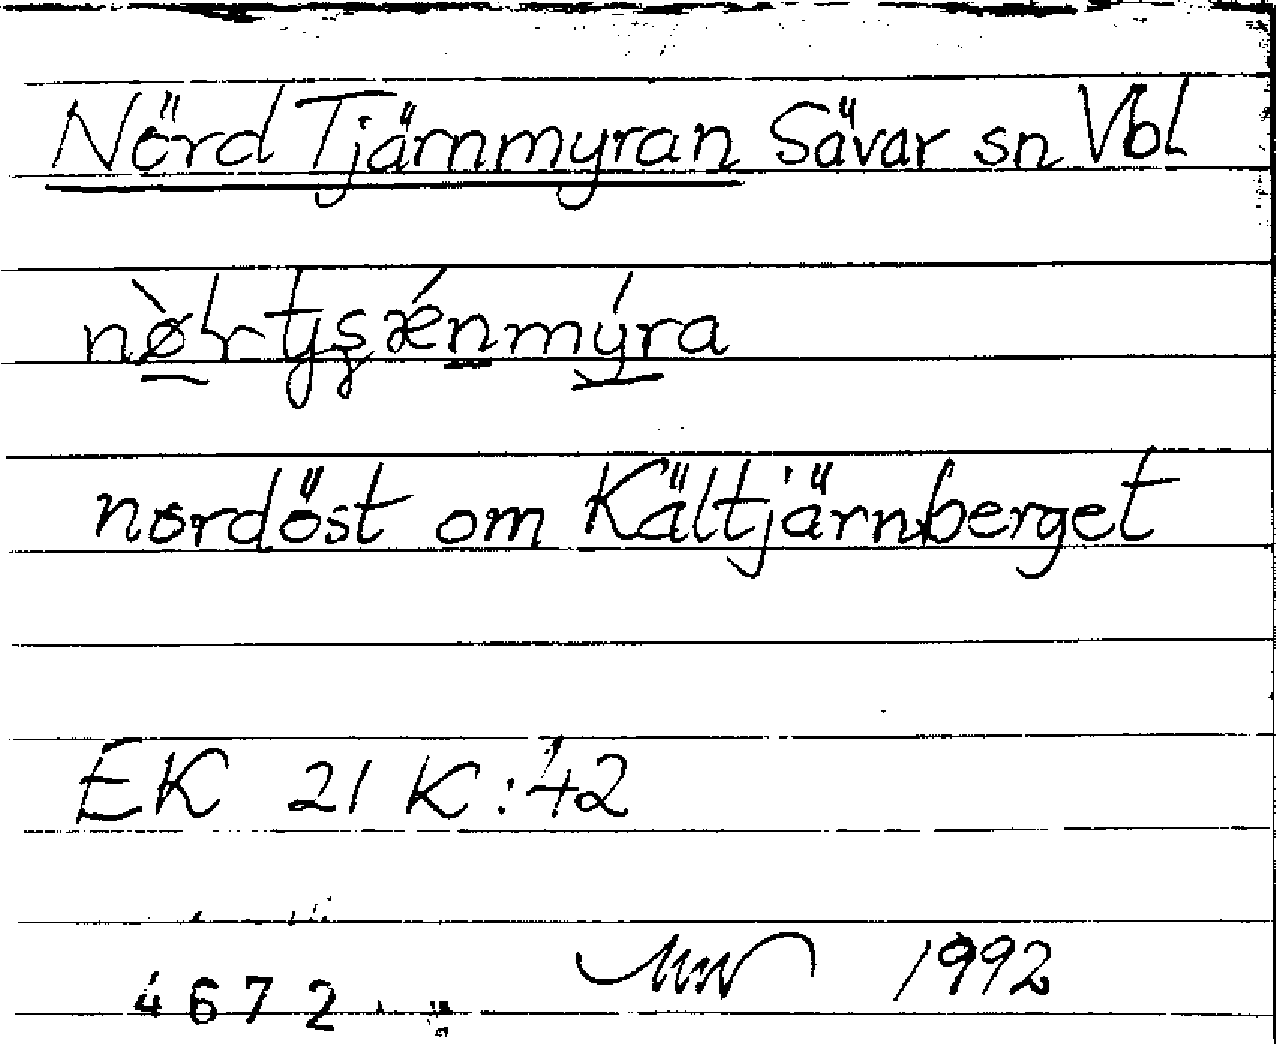 Nörd Tjärnmyran Sävar sn Vbl
nordöst om Kältjärnberget
EK 21 K:42
4672 1992